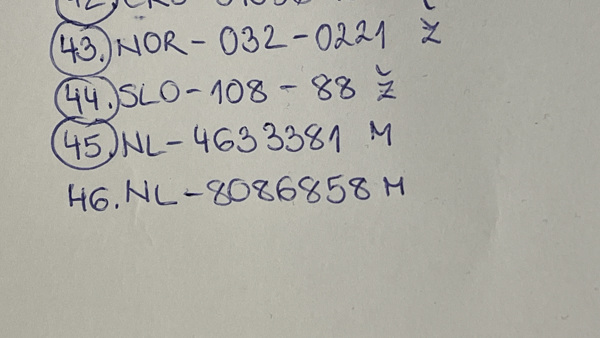 43. NOR-032-0221 Ž
44. SLO-108-88 Ž
45. NL-4633381 M
46. NL-8086858 M